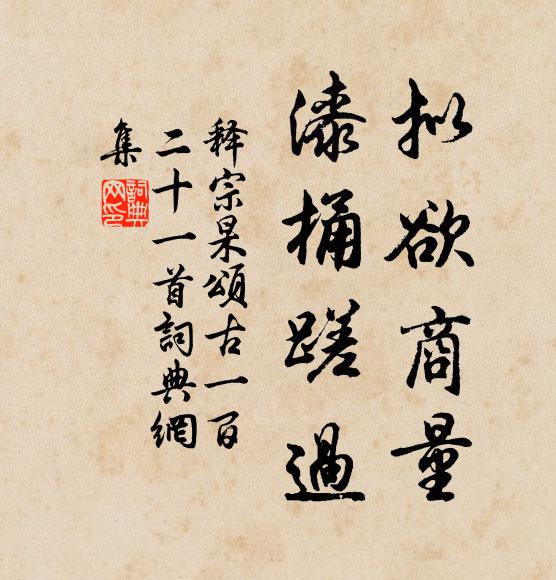 拟欲商量
漆桶蹉過
释宗杲頌古一百
二十一首詞典網
集
詞典网印